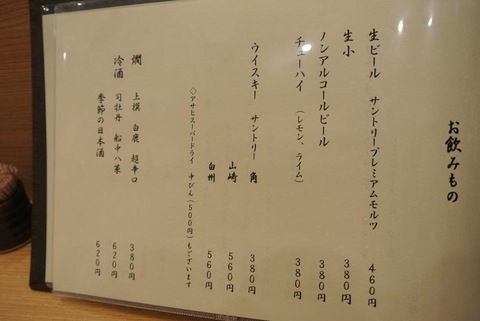 お飲みもの
生ビール サントリープレミアムモルツ 460円
生小 380円
ノンアルコールビール 380円
チューハイ (レモン、ライム) 380円
ウイスキー サントリー 角 380円
山崎 560円
白州 560円
◇アサヒスーパードライ 中びん(500円)もございます
燗 上撰 白鹿 超辛口 380円
冷酒 司牡丹 船中八策 620円
季節の日本酒 620円